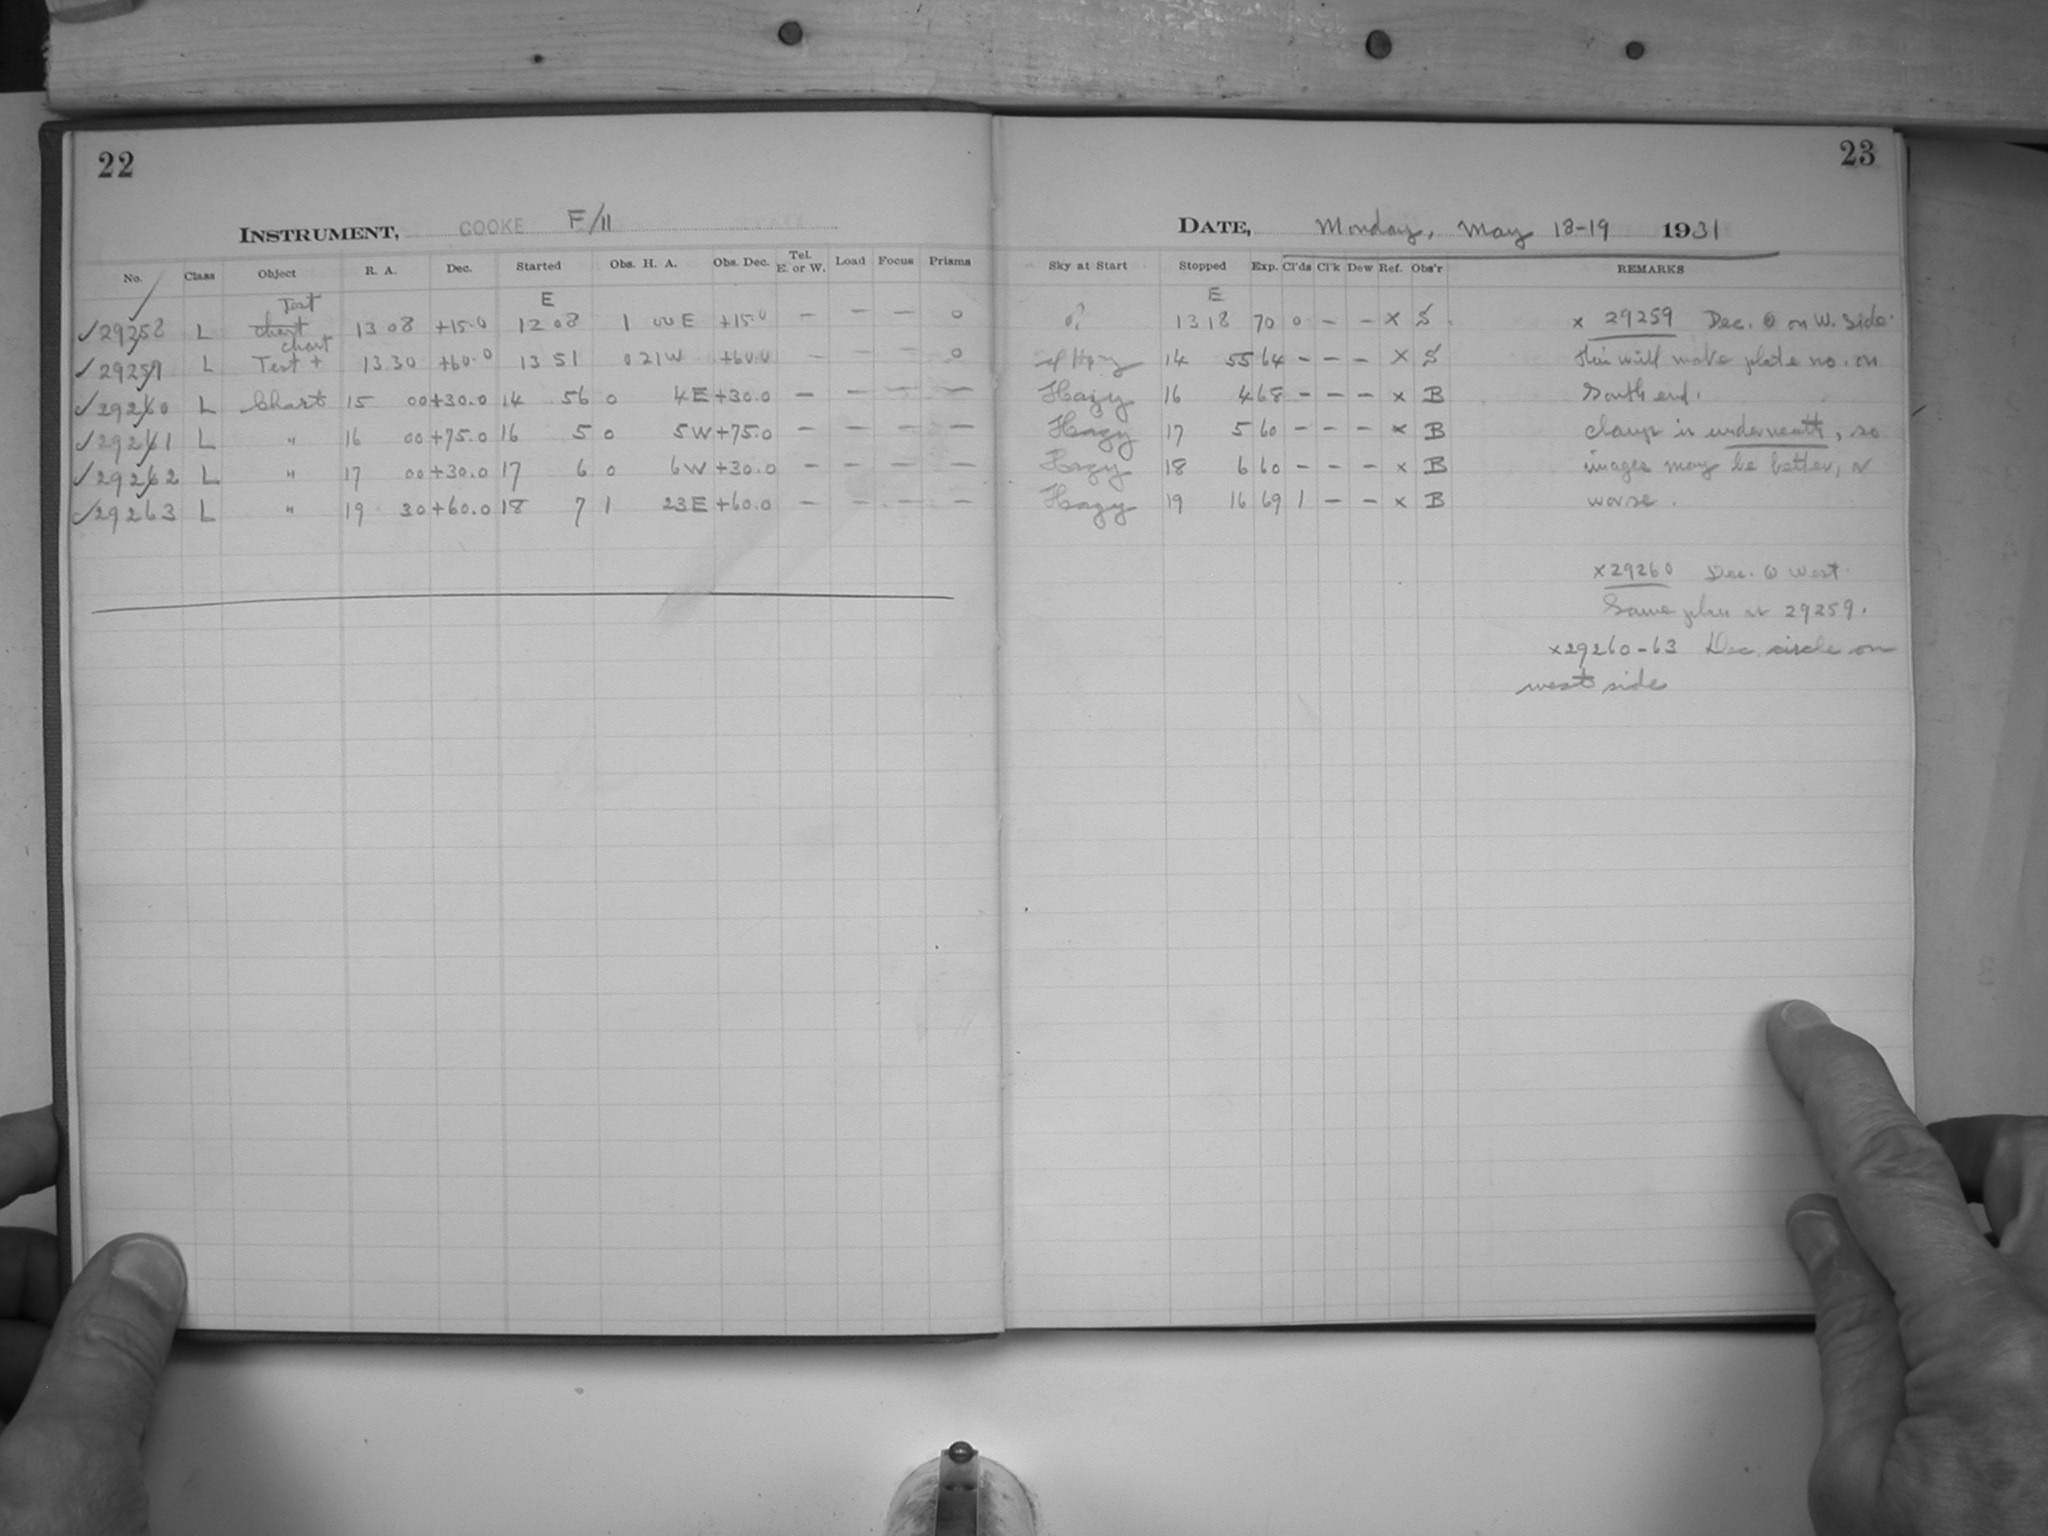 22
INSTRUMENT, COOKE F/11
No. Class Object R. A. Dec. Started Obs. H. A. Obs. Dec. Tel. E. or W. Load Focus Prisms
Test E
✓29258 L chart 13 08 +15.0 12 08 1 00 E +15.0 — — — 0
chart
✓29259 L Test + 13 30 +60.0 13 51 0 21 W +60.0 — — — 0
✓29260 L Chart 15 00 +30.0 14 56 0 4 E +30.0 — — — —
✓29261 L " 16 00 +75.0 16 5 0 5 W +75.0 — — — —
✓29262 L " 17 00 +30.0 17 6 0 6 W +30.0 — — — —
✓29263 L " 19 30 +60.0 18 7 1 23 E +60.0 — — — —
23
DATE, Monday, May 18-19 1931
Sky at Start Stopped Exp. Cl'ds Cl'k Dew Ref. Obs'r REMARKS
E
13 18 70 0 — — x S x 29259 Dec. on W. Side.
14 55 64 — — — x S this will make plate no. on
Hazy 16 4 68 — — — x B South end.
Hazy 17 5 60 — — — x B clamp is underneath, so
Hazy 18 6 60 — — — x B images may be better, or
Hazy 19 16 69 1 — — x B worse.
x29260 Dec. West.
Same as 29259.
x29260-63 Dec. circle on
west side